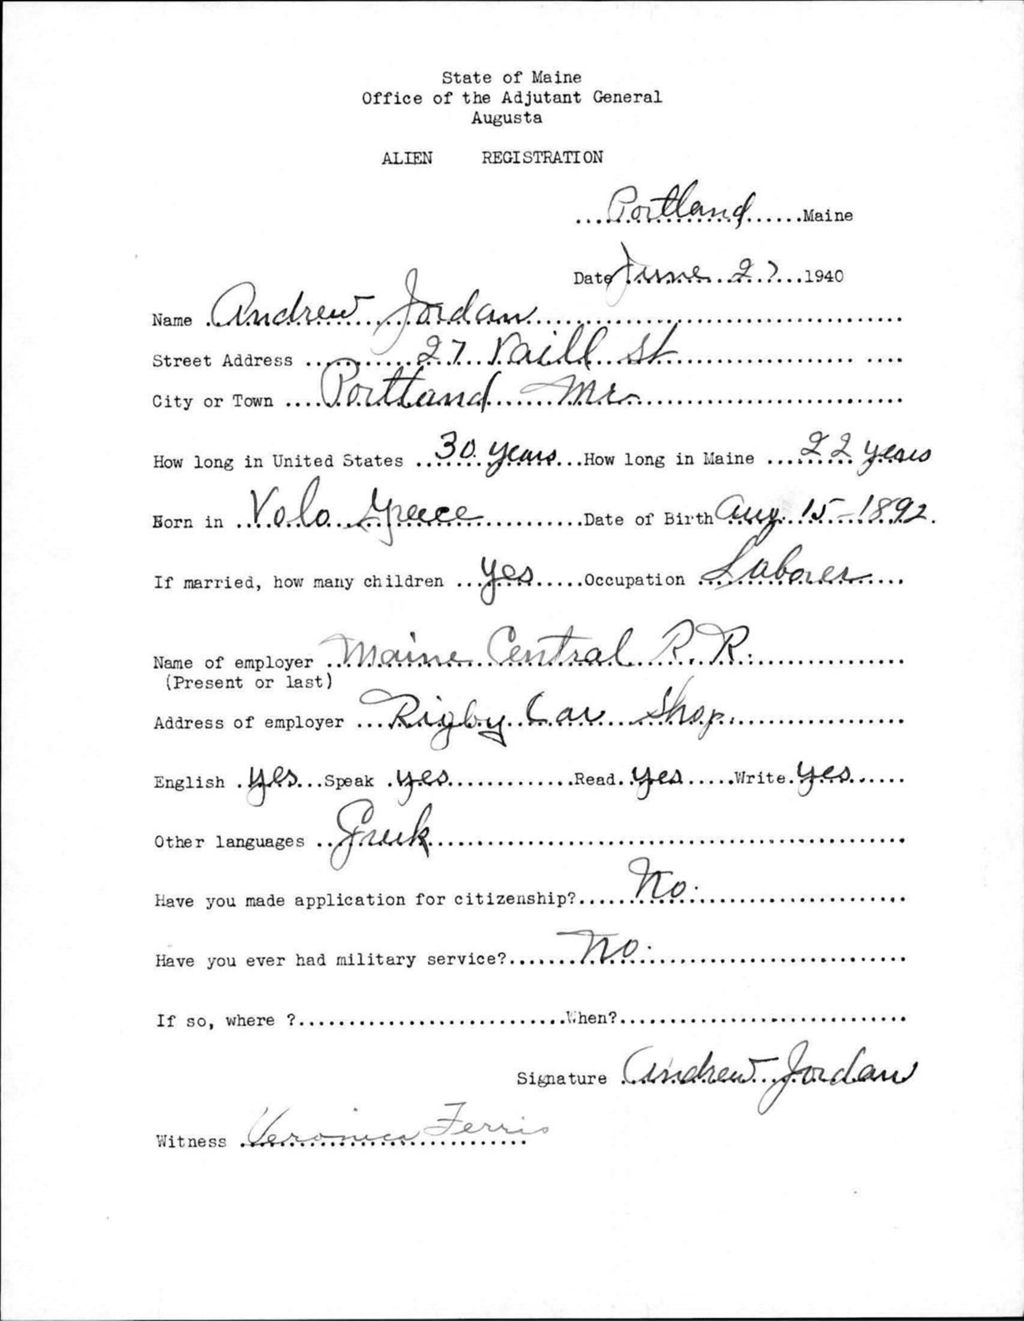 State of Maine
Office of the Adjutant General
Augusta
ALIEN REGISTRATION
...Portland......Maine
Date June 27...1940
Name .Andrew Jordan
Street Address ....... 27 Vaill St
City or Town ....Portland Me.
How long in United States ..30 years...How long in Maine ...22 years
Born in ..Volo Greece............Date of Birth Aug. 15-1892.
If married, how many children ..yes.....Occupation Laborer...
Name of employer ..Maine Central R.R.
(Present or last)
Address of employer ...Rigby Car Shop.
English .yes...Speak .yes............Read.yes.....Write.yes......
Other languages ..Greek
Have you made application for citizenship?......No.
Have you ever had military service?.......No.
If so, where ?...........................When?............................
Signature Andrew Jordan
Witness .Veronica Ferris